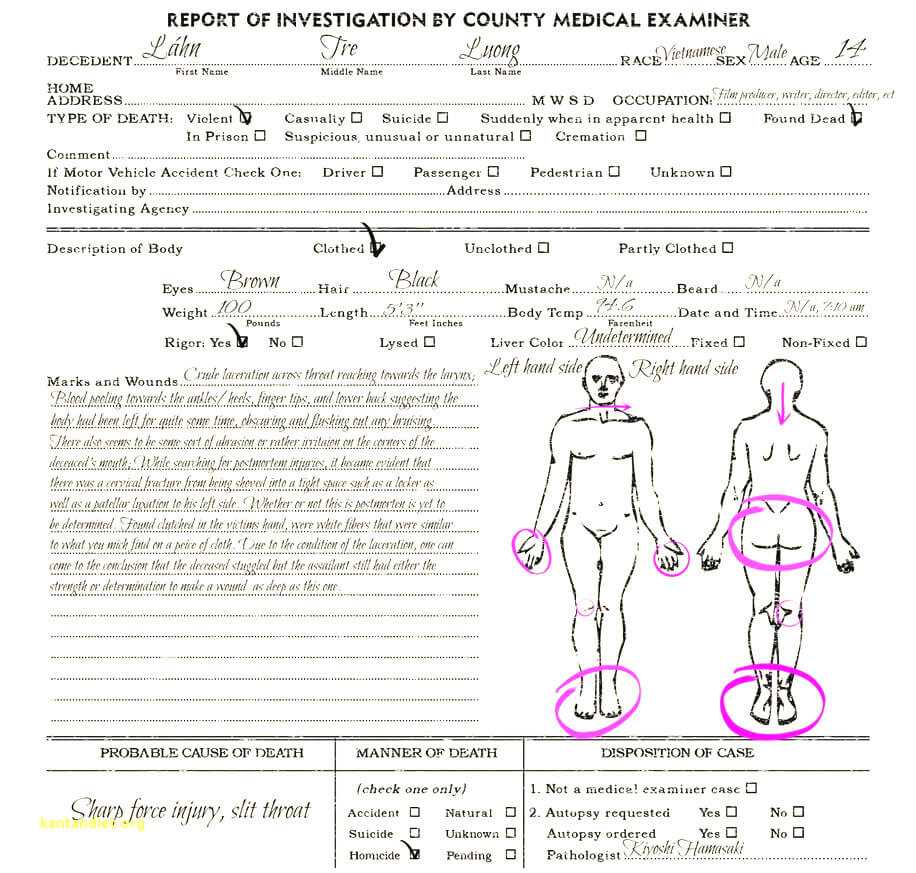 REPORT OF INVESTIGATION BY COUNTY MEDICAL EXAMINER
DECEDENT Láhn Tre Luong RACE Vietnamese SEX Male AGE 14
First Name Middle Name Last Name
HOME
ADDRESS M W S D OCCUPATION: Film producer, writer, director, editor, ect
TYPE OF DEATH: Violent Casualty Suicide Suddenly when in apparent health Found Dead
In Prison Suspicious, unusual or unnatural Cremation
Comment
If Motor Vehicle Accident Check One: Driver Passenger Pedestrian Unknown
Notification by Address
Investigating Agency
Description of Body Clothed Unclothed Partly Clothed
Eyes Brown Hair Black Mustache N/a Beard N/a
Weight 100 Length 5'3" Body Temp 94.6 Date and Time N/a, 7:10 am
Pounds Feet Inches Farenheit
Rigor: Yes No Lysed Liver Color Undetermined Fixed Non-Fixed
Left hand side Right hand side
Marks and Wounds Crude laceration across throat reaching towards the larynx;
Blood pooling towards the ankles/ heels, finger tips, and lower back suggesting the
body had been left for quite some time, obscuring and flushing out any bruising.
There also seems to be some sort of abrasion or rather irritaion on the corners of the
deceased's mouth; While searching for postmortem injuries, it became evident that
there was a cervical fracture from being shoved into a tight space such as a locker as
well as a patellar lixation to his left side. Whether or not this is postmorten is yet to
be determined. Found clutched in the victims hand, were white fibers that were similar
to what you mich find on a peice of cloth. Due to the condition of the laceration, one can
come to the conclusion that the deceased stuggled but the assailant still had either the
strength or determination to make a wound as deep as this one.
PROBABLE CAUSE OF DEATH MANNER OF DEATH DISPOSITION OF CASE
Sharp force injury, slit throat
(check one only)
Accident Natural
Suicide Unknown
Homicide Pending
1. Not a medical examiner case
2. Autopsy requested Yes No
Autopsy ordered Yes No
Pathologist Kiyoshi Hamasaki